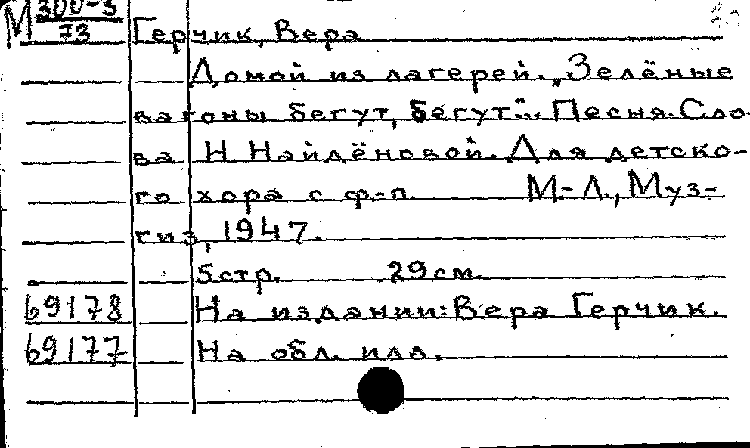 М 300-3
73
Герчик, Вера
Домой из лагерей. „Зелёные
вагоны бегут, бегут"... Песня. Сло-
ва Н Найдёновой. Для детско-
го хора с ф-п. М-Л., Муз-
гиз, 1947.
5стр. 29см.
69178 На издании: Вера Герчик.
69177 На обл. илл.